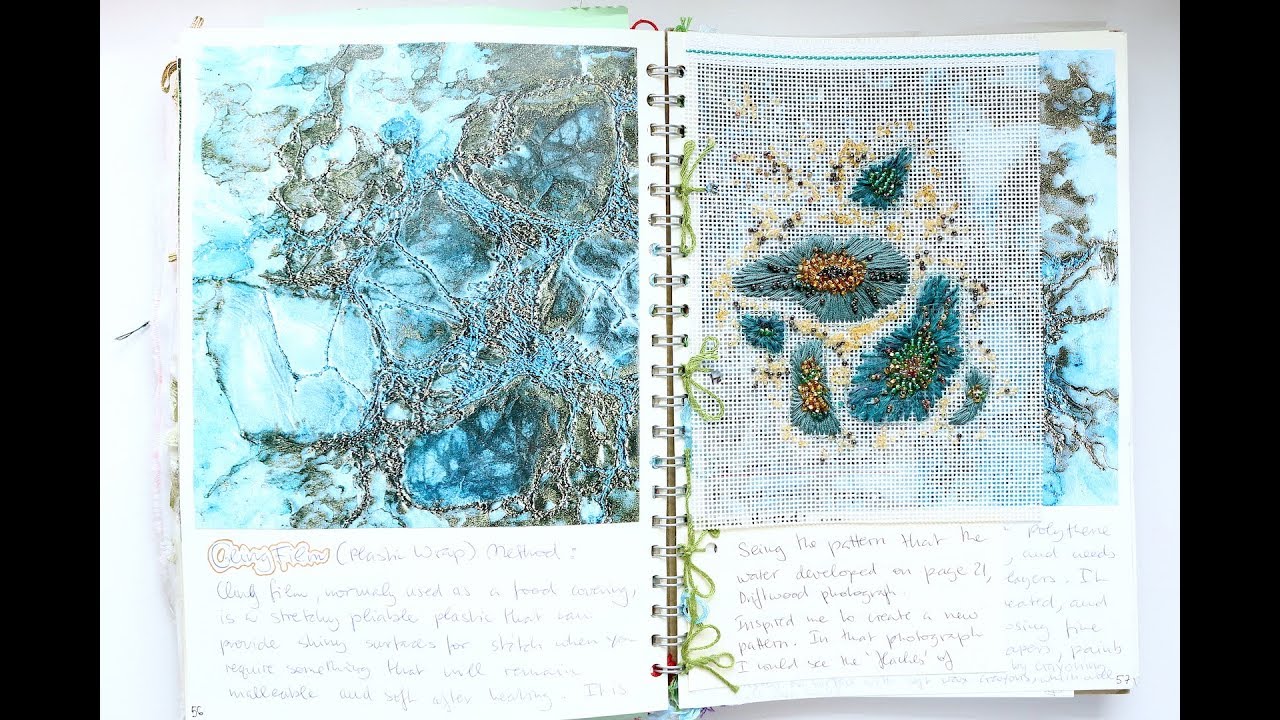 Cling Film (Plastic Wrap) Method:
Cling film, normaly used as a food covering,
is a stretchy pliable plastic that can
provide shiny surfaces for stitch when you
require something that will remain
malleable and soft after heating. It is
56
Seing the pattern that the
water developed on page 21,
Driftwood photograph.
Inspired me to create a new
pattern. In that photograph
I would see the "flaches" of
polythene
and needs
layers. It
eated, and
osing fine
apers, paints
by crayoning
57